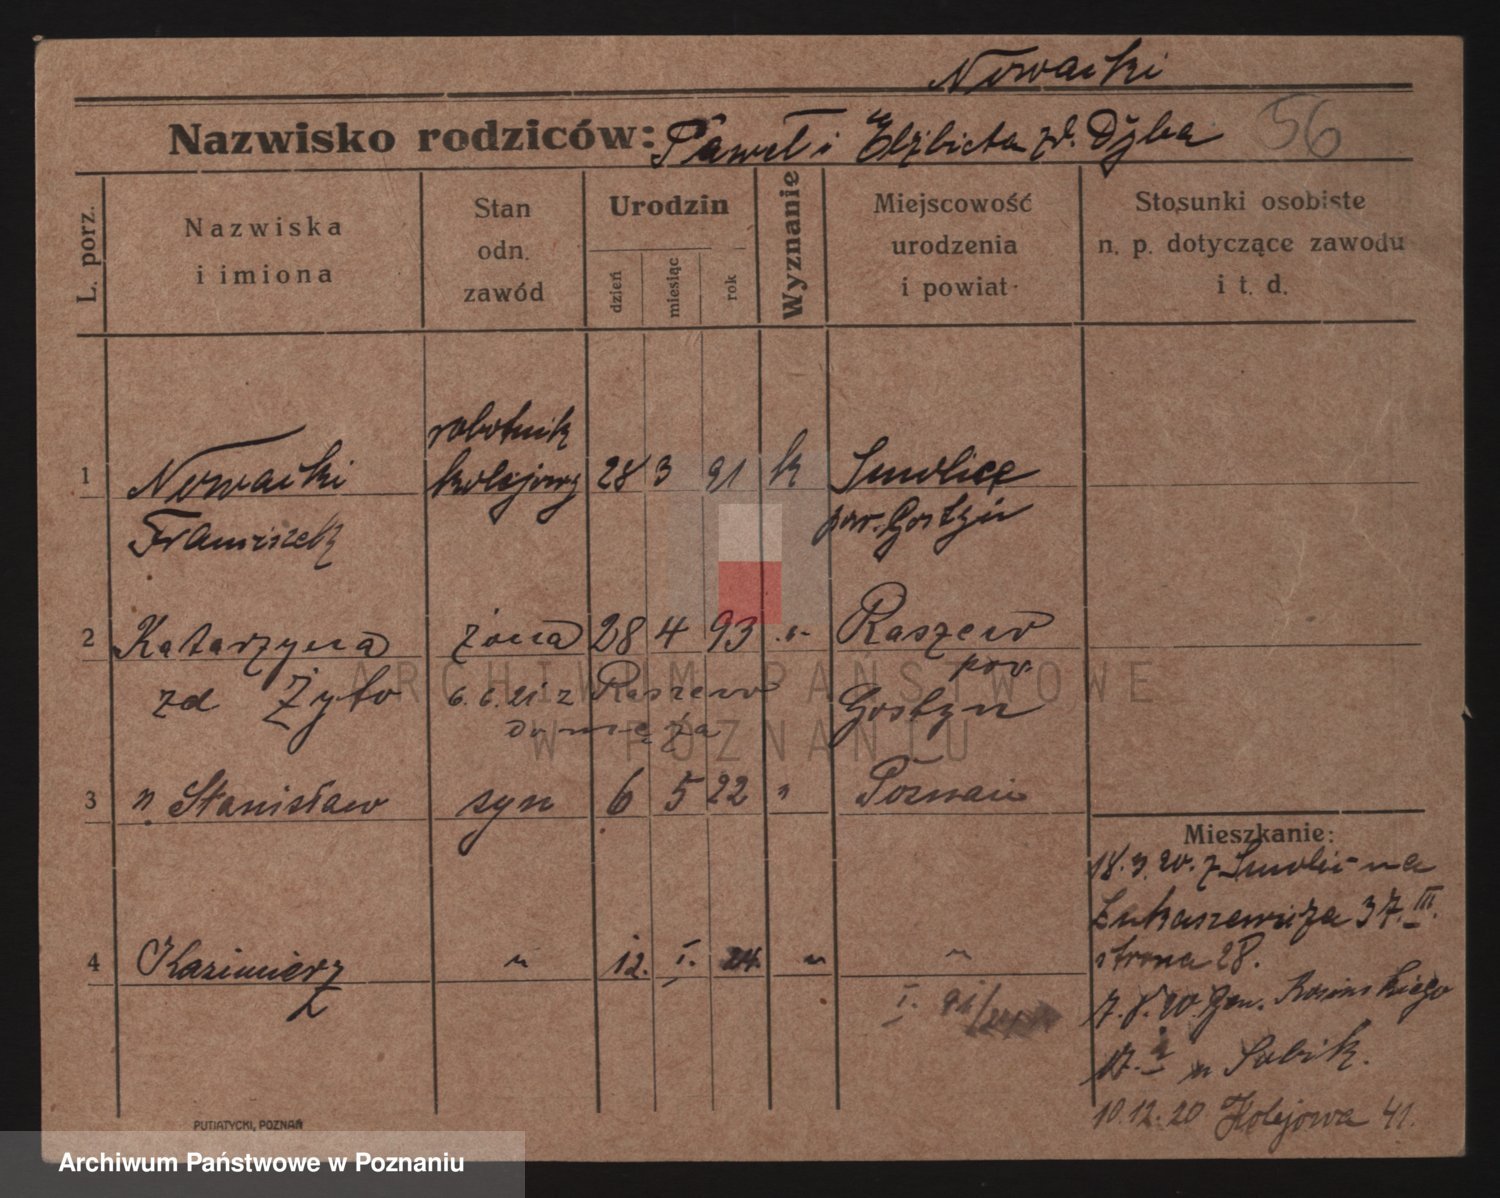 Nowacki
Nazwisko rodziców: Paweł i Elżbieta zd. Dyba 56
L. porz.
Nazwiska
i imiona
Stan
odn.
zawód
Urodzin
dzień
miesiąc
rok
Wyznanie
Miejscowość
urodzenia
i powiat
Stosunki osobiste
n. p. dotyczące zawodu
i t. d.
robotnik
1 Nowacki kolejowy 28 3 91 k Smolice
Franciszek pow. Gostyń
2 Katarzyna żona 28 4 93 Raszew
zd Żyto 6. 6. 21 z Raszew pow. Gostyn
do męża
3 n. Stanisław syn 6 5 22 " Poznań
Mieszkanie:
18. 3. 20. z Smolic na
Łukaszewicza 37. III.
strona 28.
4 Kazimierz " 12. I. 24. " "
I.
7. 8. 20. Gen. Kosinskiego
17. u Subik.
10.12.20 Kolejowa 41.
PUTIATYCKI, POZNAŃ
ARCHIWUM PAŃSTWOWE
W POZNANIU
Archiwum Państwowe w Poznaniu